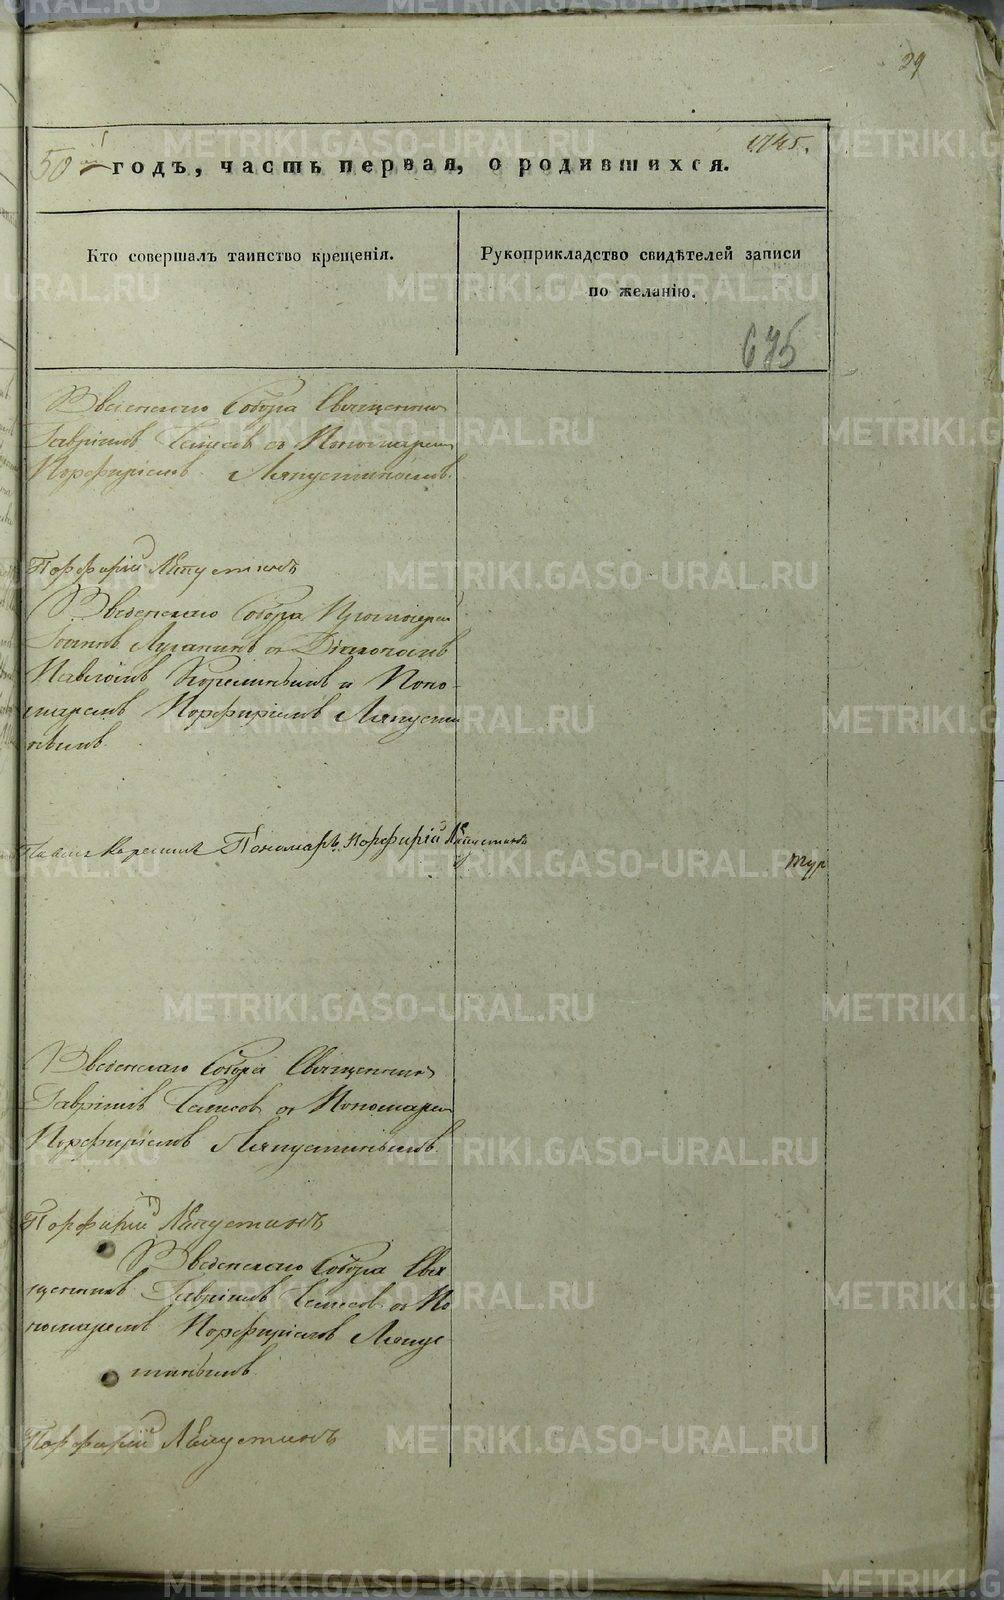 METRIKI.GASO-URAL.RU
29
1745.
50 годъ, часть первая, о родившихся.
Кто совершалъ таинство крещенія.
Рукоприкладство свидѣтелей записи
по желанію.
675
Введенскаго Собора Священник
Гавріилъ с Пономарем
Порфиріемъ Ляпустинымъ.
Порфирій Ляпустинъ
Введенскаго Собора Протоіерей
Іоаннъ съ Діакономъ
Павломъ и Поно-
маремъ Порфиріемъ Ляпусти
нымъ.
Пономарь Порфирій Ляпустинъ
Введенскаго Собора Священник
Гавріилъ с Пономарем
Порфиріемъ Ляпустинымъ.
Порфирій Ляпустинъ
Введенскаго Собора Свя
щенникъ Гавріилъ с По
номаремъ Порфиріемъ Ляпус-
тинымъ.
Порфирій Ляпустинъ